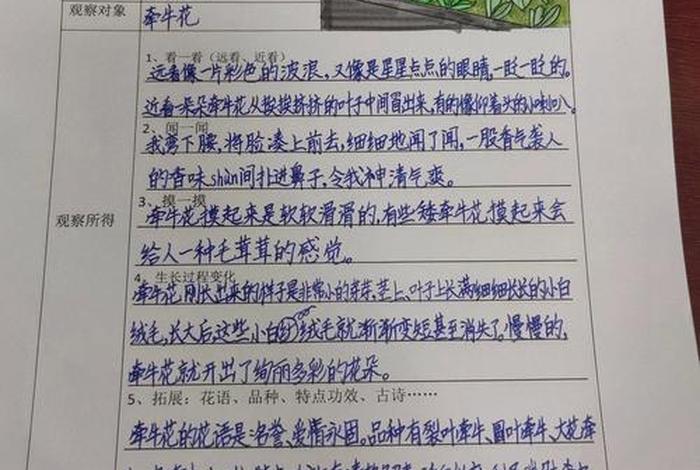 观察对象
牵牛花
1、看一看（远看、近看）
远看像一片彩色的波浪，又像是星星点点的眼睛，一眨一眨的。
近看一朵朵牵牛花从挨挨挤挤的叶子中间冒出来，有的像仰着头的小喇叭。
2、闻一闻
我弯下腰，将脸凑上前去，细细地闻了闻，一股香气袭人
的香味shùn间扑进鼻子，令我神清气爽。
3、摸一摸
观察所得
牵牛花摸起来是软软滑滑的，有些矮牵牛花摸起来会
给人一种毛茸茸的感觉。
4、生长过程变化
牵牛花刚长出来的样子是非常小的芽芽，茎上、叶子上长满细细长长的小白
绒毛，长大后，这些小白绒毛就渐渐变短甚至消失了。慢慢的，
牵牛花就开出了绚丽多彩的花朵。
5、拓展：花语、品种、特点功效、古诗……
牵牛花的花语是名誉、爱情永固。品种有裂叶牵牛、圆叶牵牛、大花牵